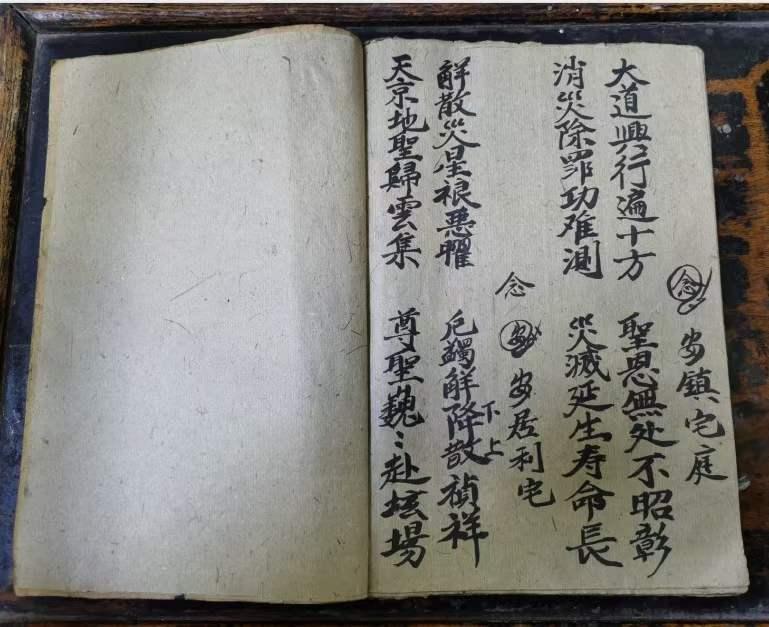 念 安鎮宅庭
大道興行遍十方 聖恩無处不昭彰
消災除罪功难測 災滅延生寿命長
念 安居利宅
解散災星禳悪曜 厄蠲解降散禎祥
下上
天京地聖歸雲集 尊聖巍〻赴坛場